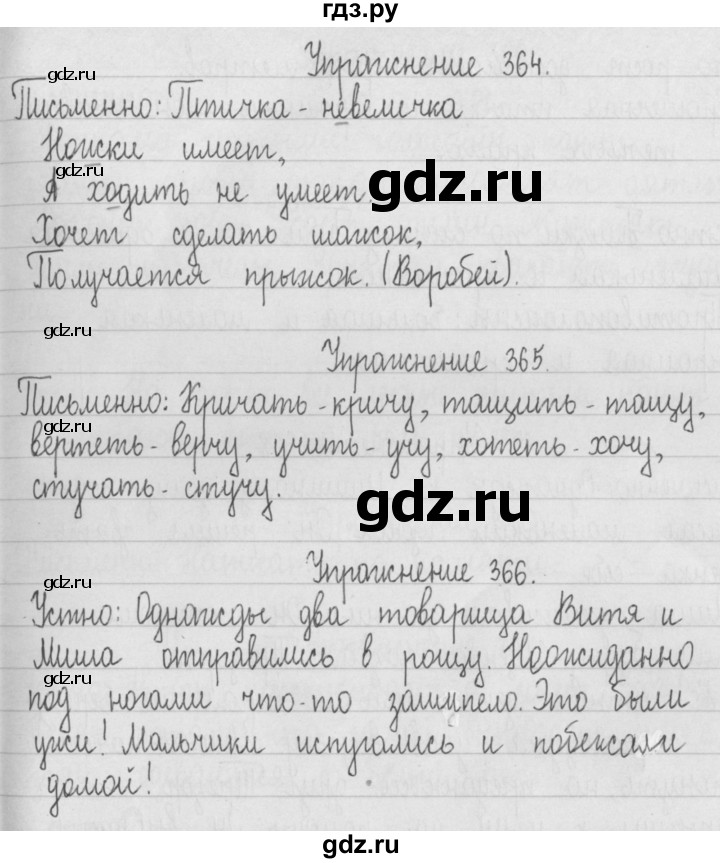 гдз.ру
Упражнение 364.
gdz.ru
Письменно: Птичка - невеличка
gdz.ru
Ножки имеет,
gdz.ru
А ходить не умеет.
gdz.ru
Хочет сделать шажок,
Получается прыжок. (Воробей).
gdz.ru
Упражнение 365.
Письменно: Кричать - кричу, тащить - тащу,
вертеть - верчу, учить - учу, хотеть - хочу,
gdz.ru
стучать - стучу.
gdz.ru
Упражнение 366.
gdz.ru
Устно: Однажды два товарища Витя и
Миша отправились в рощу. Неожиданно
под ногами что-то зашипело. Это были
gdz.ru
ужи! Мальчики испугались и побежали
домой!
gdz.ru